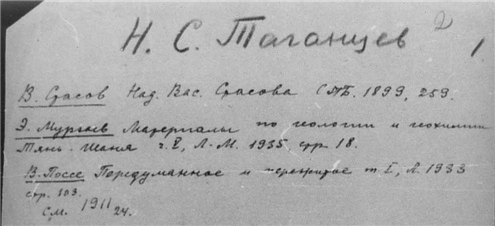 Н. С. Таганцев 2 1
В. Спасов Над. Вас. Спасова СПБ. 1899, 259.
Э. Мурзаев Материалы по геологии и геохимии
Тянь-Шаня ч. V, Л.-М. 1935 стр. 18.
В. Поссе Передуманное и пережитое т. I, Л. 1933
стр. 103.
См. 1911 24.